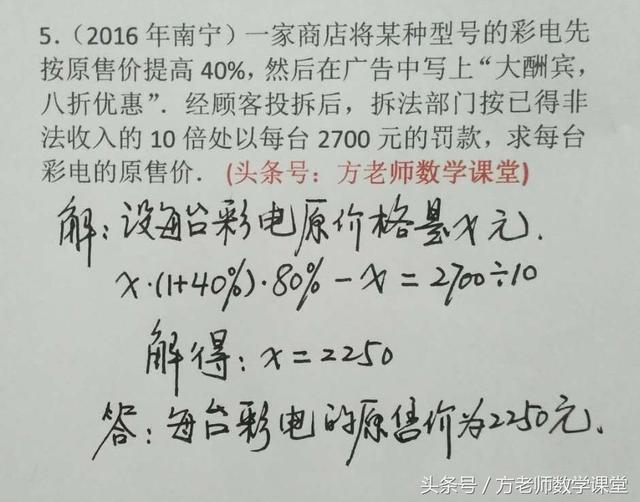 5.（2016 年南宁）一家商店将某种型号的彩电先
按原售价提高 40%，然后在广告中写上“大酬宾，
八折优惠”．经顾客投拆后，拆法部门按已得非
法收入的 10 倍处以每台 2700 元的罚款，求每台
彩电的原售价．(头条号：方老师数学课堂)
解：设每台彩电原价格是x元．
x·(1+40%)·80%－x＝2700÷10
解得：x＝2250
答：每台彩电的原售价为2250元．
头条号 / 方老师数学课堂